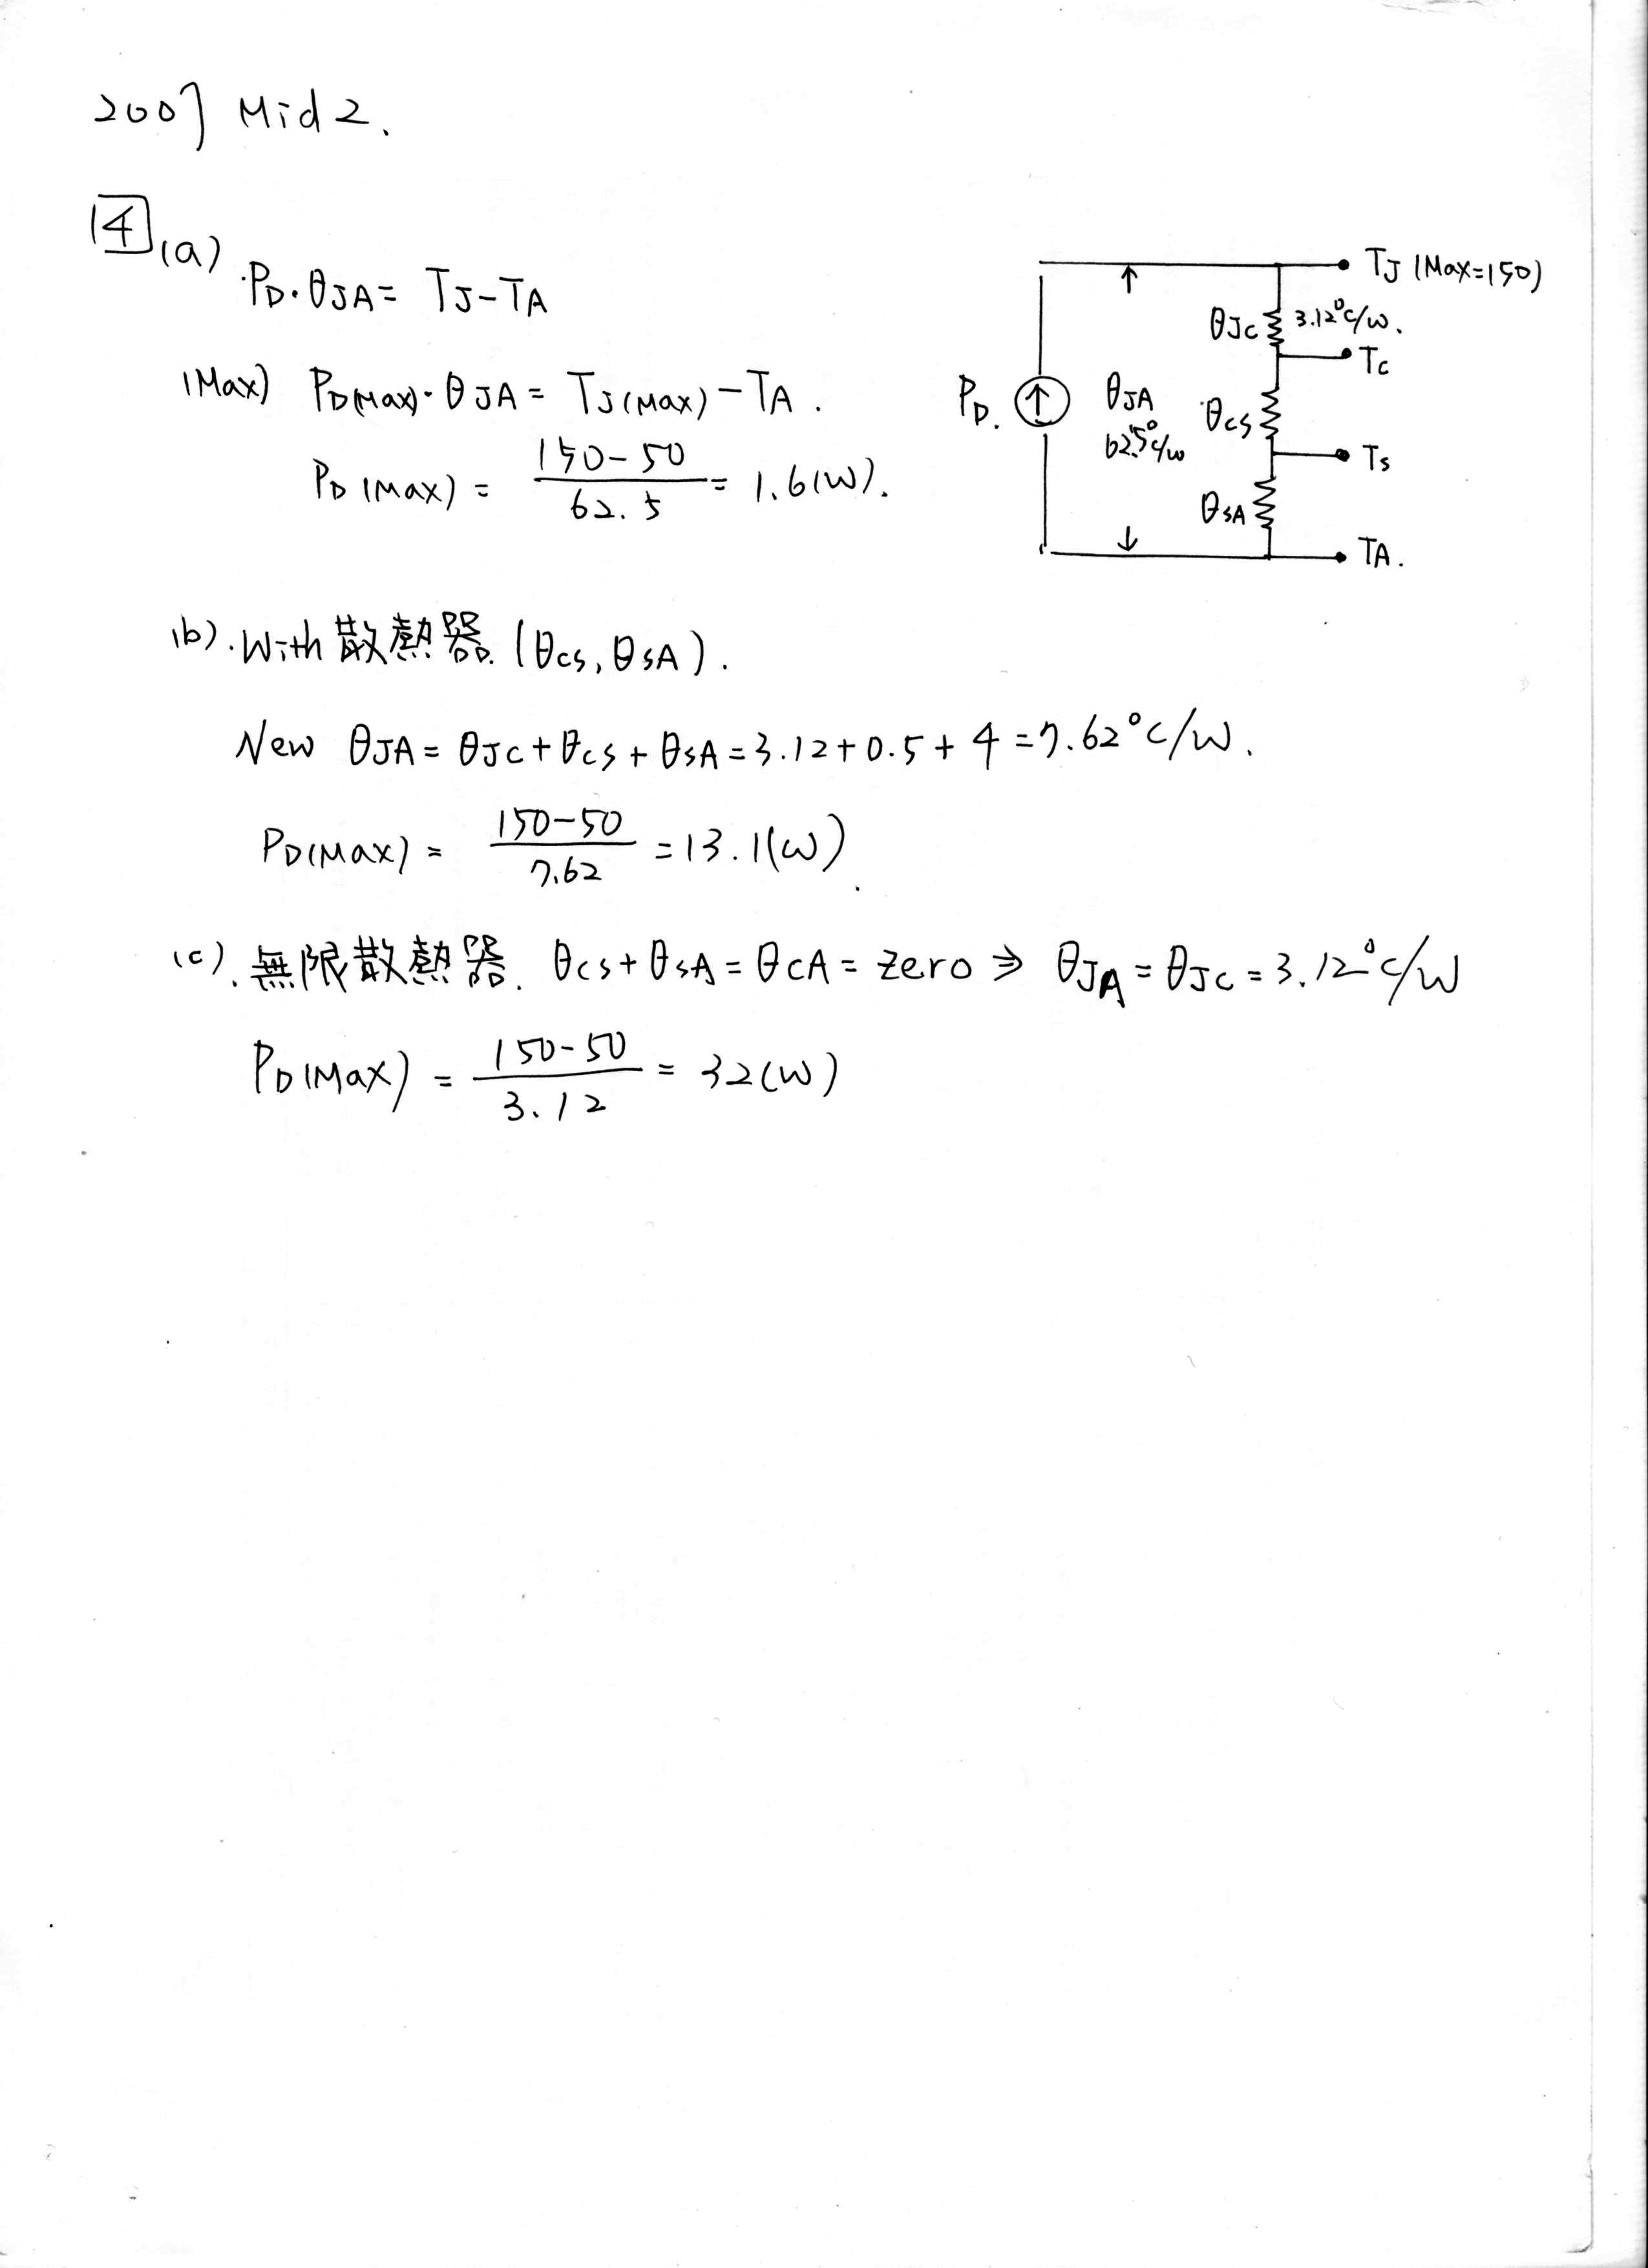 2007 Mid 2.
4 (a) P_D·θ_JA = T_J-T_A
(Max) P_D(Max)·θ_JA = T_J(Max)-T_A.
P_D(Max) = (150-50)/62.5 = 1.6(W).
T_J (Max=150)
θ_JC 3.12°C/W.
T_C
P_D.
θ_JA
62.5°C/W
θ_CS
T_S
θ_SA
T_A.
(b). With 散熱器. (θ_CS, θ_SA).
New θ_JA = θ_JC+θ_CS+θ_SA = 3.12+0.5+4 = 7.62°C/W.
P_D(Max) = (150-50)/7.62 = 13.1(W).
(c). 無限散熱器. θ_CS+θ_SA = θ_CA = zero ⇒ θ_JA = θ_JC = 3.12°C/W
P_D(Max) = (150-50)/3.12 = 32(W)